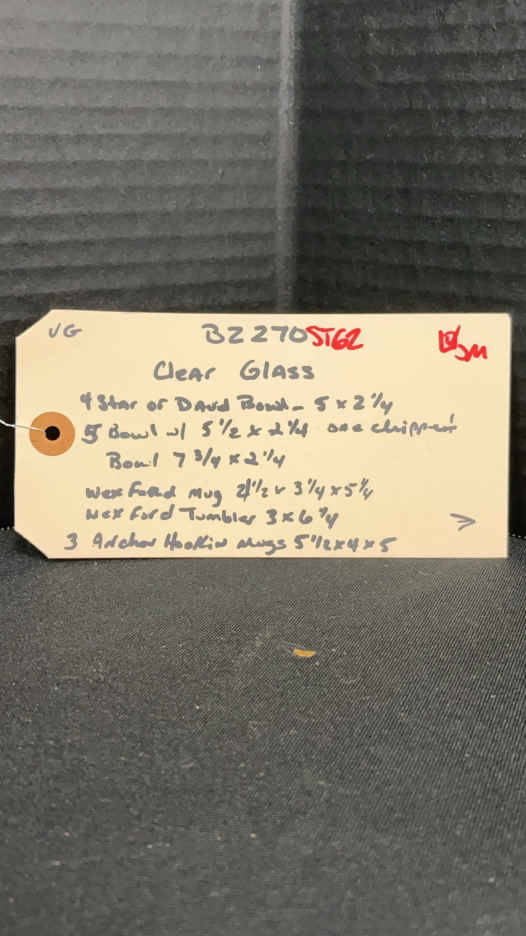 VG BZ270 ST62 JM
Clear Glass
4 Star of David Bowl - 5 x 2 1/4
5 Bowl w/ 5 1/2 x 2 1/4 one chipped
Bowl 7 3/4 x 2 1/4
Wexford Mug 4 1/2 x 3 1/4 x 5 1/4
Wexford Tumbler 3 x 6 1/4
3 Anchor Hockin Mugs 5 1/2 x 4 x 5